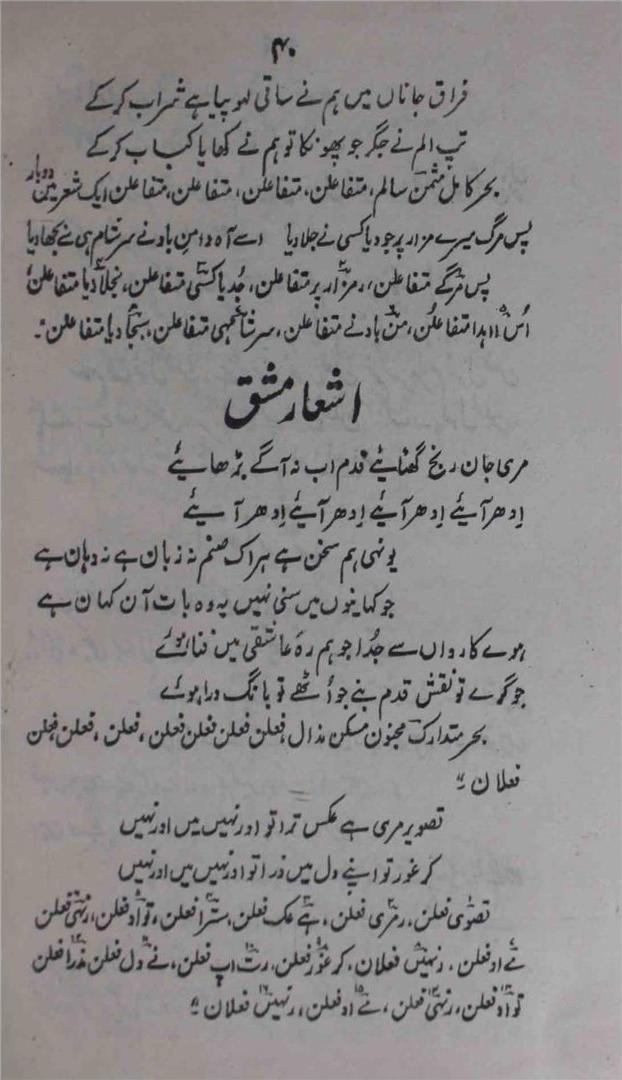 ۴۰
فراق جاناں میں ہم نے ساقی لہو پیا ہے شراب کرکے
تپ الم نے جگر جو پھونکا تو ہم نے کھایا کباب کرکے
بحر کامل مثمن سالم، متفاعلن، متفاعلن، متفاعلن، متفاعلن ایک شعر میں دوبار
پس مرگ میرے مزار پر جو دیا کسی نے جلا دیا اسے آہ دامنِ باد نے سرِ شام ہی نے بجھا دیا
پس مرگے متفاعلن، رمزار پر متفاعلن، جُدیا کسی متفاعلن، نجلا دیا متفاعلن
اُس ااہدا متفاعلن، من باد نے متفاعلن، سر شا مہی متفاعلن، بجا دیا متفاعلن۔
اشعار مشق
مری جان رنج گھٹایئے قدم اب نہ آگے بڑھایئے
اِدھر آیئے اِدھر آیئے اِدھر آیئے اِدھر آیئے
یونہی ہم سخن ہے ہراک صنم نہ زبان ہے نہ دہان ہے
جو کہاینوں میں سنی نہیں یہ وہ بات آن کہان ہے
ہوے کارواں سے جُدا جو ہم رہ عاشقی میں فنا ہوئے
جو گرے تو نقش قدم بنے جو اُٹھے تو بانگ درا ہوئے
بحر متدارک مخبون مسکن مذال، فعلن فعلن فعلن فعلن، فعلن، فعلن فعلن
فعلان ؞
تصویر مری ہے عکس ترا تو اور نہیں میں اور نہیں
کر غور تو اپنے دل میں ذرا تو اور نہیں میں اور نہیں
تصوی فعلن، رمری فعلن، ہے عک فعلن، ستر افعلن، تو او فعلن، رنہی فعلن
مے او فعلن، رنہیں فعلان، کر غو فعلن، رت اپ فعلن، نے دل فعلن مذرا فعلن
تو او فعلن، رنہی فعلن، مے او فعلن، رنہیں فعلان ؞